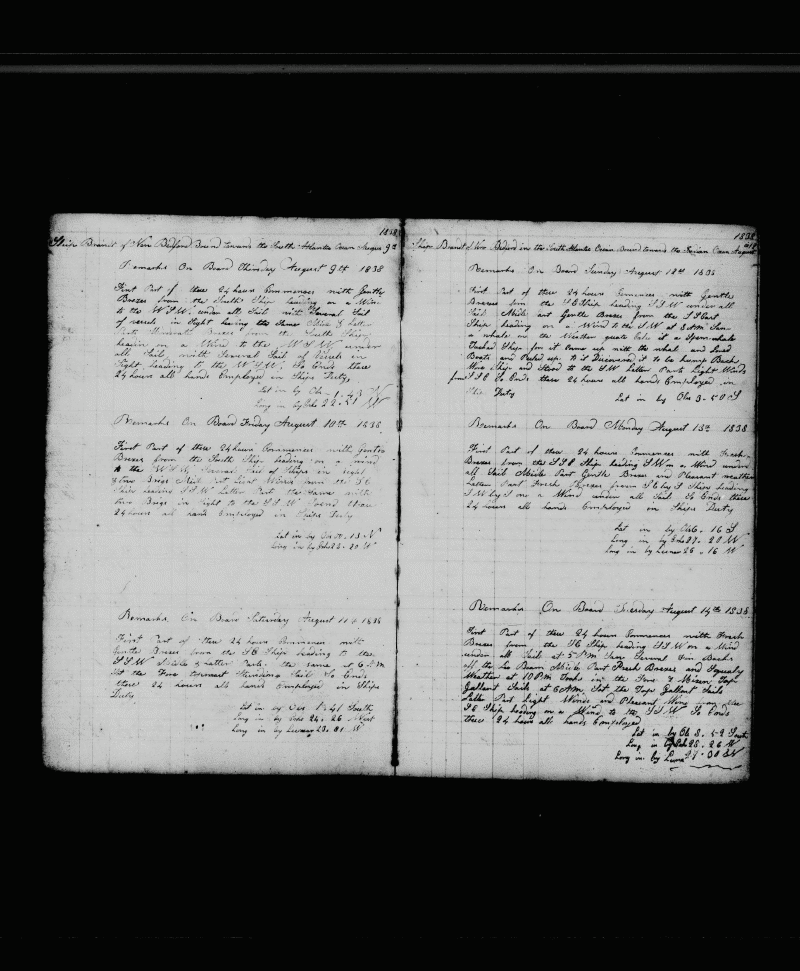 1838
Ship Braint of New Bedford Bound towards the South Atlantic Ocean August 9th
Remarks On Board Thursday August 9th 1838
First Part of these 24 hours Commences with Gentle
Brezes from the South Ship heading on a Wind
to the W.S.W. under all Sail with Several Sail
of vessels in Sight having the Same Middle & Latter
Parts Gentle Brezes from the South Ship
headin on a Wind to the W S W under
all Sail, with Several Sail of Vessels in
Sight heading to the W.S.W. So Ends these
24 hours all hands Employed in Ships Duty,
Lat in by Obs 1.43 N
Long in by Obs 22.51 W
Remarks On Board Friday August 10th 1838
First Part of these 24 hours Commences with Gentle
Brezes from the South Ship heading on a wind
to the W.S.W. Several Sail of Ships in sight
& two Brigs Midd Part Light Winds from the S E
Ships heading S.S.W Latter Part the Same with
two Brigs in sight to the S.S.W So Ends these
24 hours all hands Employed in Ships Duty
Lat in by Obs 13 N
Long in by Obs 23.20 W
Remarks On Board Saturday August 11th 1838
First Part of these 24 hours Commences with
Gentle Brezes from the S E Ship heading to the
S S W Middle & Latter Parts the same at 6 A.M
Set the Fore topmast Studding Sail So Ends
these 24 hours all hands Employed in Ships
Duty
Lat in by Obs 1.41 South
Long in by Obs 24.26 West
Long in by Lunar 23.01 W
1838
Ship Braint of New Bedford in the South Atlantic Ocean Bound toward the Indian Ocean August 12
Remarks On Board Sunday August 12th 1838
First Part of these 24 hours Comences with Gentle
Brezes from the S E Ship heading S S.W under all
Sail Middle Part Gentle Brezes from the S S East
Ship heading on a Wind to the S W at 8 A M Saw
a whale on the Weather quarter it a Sperm whale
Tacked Ship for it came up with the whale and Lowed
Boats and Pulled up to it Discovered it to be hump Back
Wore Ship and Steerd to the S W Latter Parts Light Winds
from S S E So Ends these 24 hours all hands Employed in
Ship Duty
Lat in by Obs 3.50 S
Remarks On Board Monday August 13th 1838
First Part of these 24 hours Commences with Fresh
Brezes from the S S E Ship heading S W on a Wind under
all Sail Middle Part Gentle Brezes and Pleasant weather
Latter Part Fresh Brezes from S E by S Ship heading
S W by S on a Wind under all Sail So Ends these
24 hours all hands Employed on Ships Duty
Lat in by Obs 6.16 S
Long in by Obs 27.20 W
Long in by Lunar 25.16 W
Remarks On Board Tuesday August 14th 1838
First Part of these 24 hours Commences with Fresh
Brezes from the S E Ship heading S S.W on a Wind
under all Sail at 5 P.M Saw Several Fin Backs
off the Lee Beam Middle Part Fresh Brezes and Squaly
Weather at 10 P M Took in the Fore & Mizen Top
Gallant Sails at 6 A M, Set the Top Gallant Sails
Latter Part Light Winds and Pleasant, Wind from the
S E Ship heading on a Wind to the S S W So Ends
these 24 hours all hands Employed
Lat in by Obs 8.52 South
Long in by Obs 28.26 W
Long in by Lunar 27.30 W